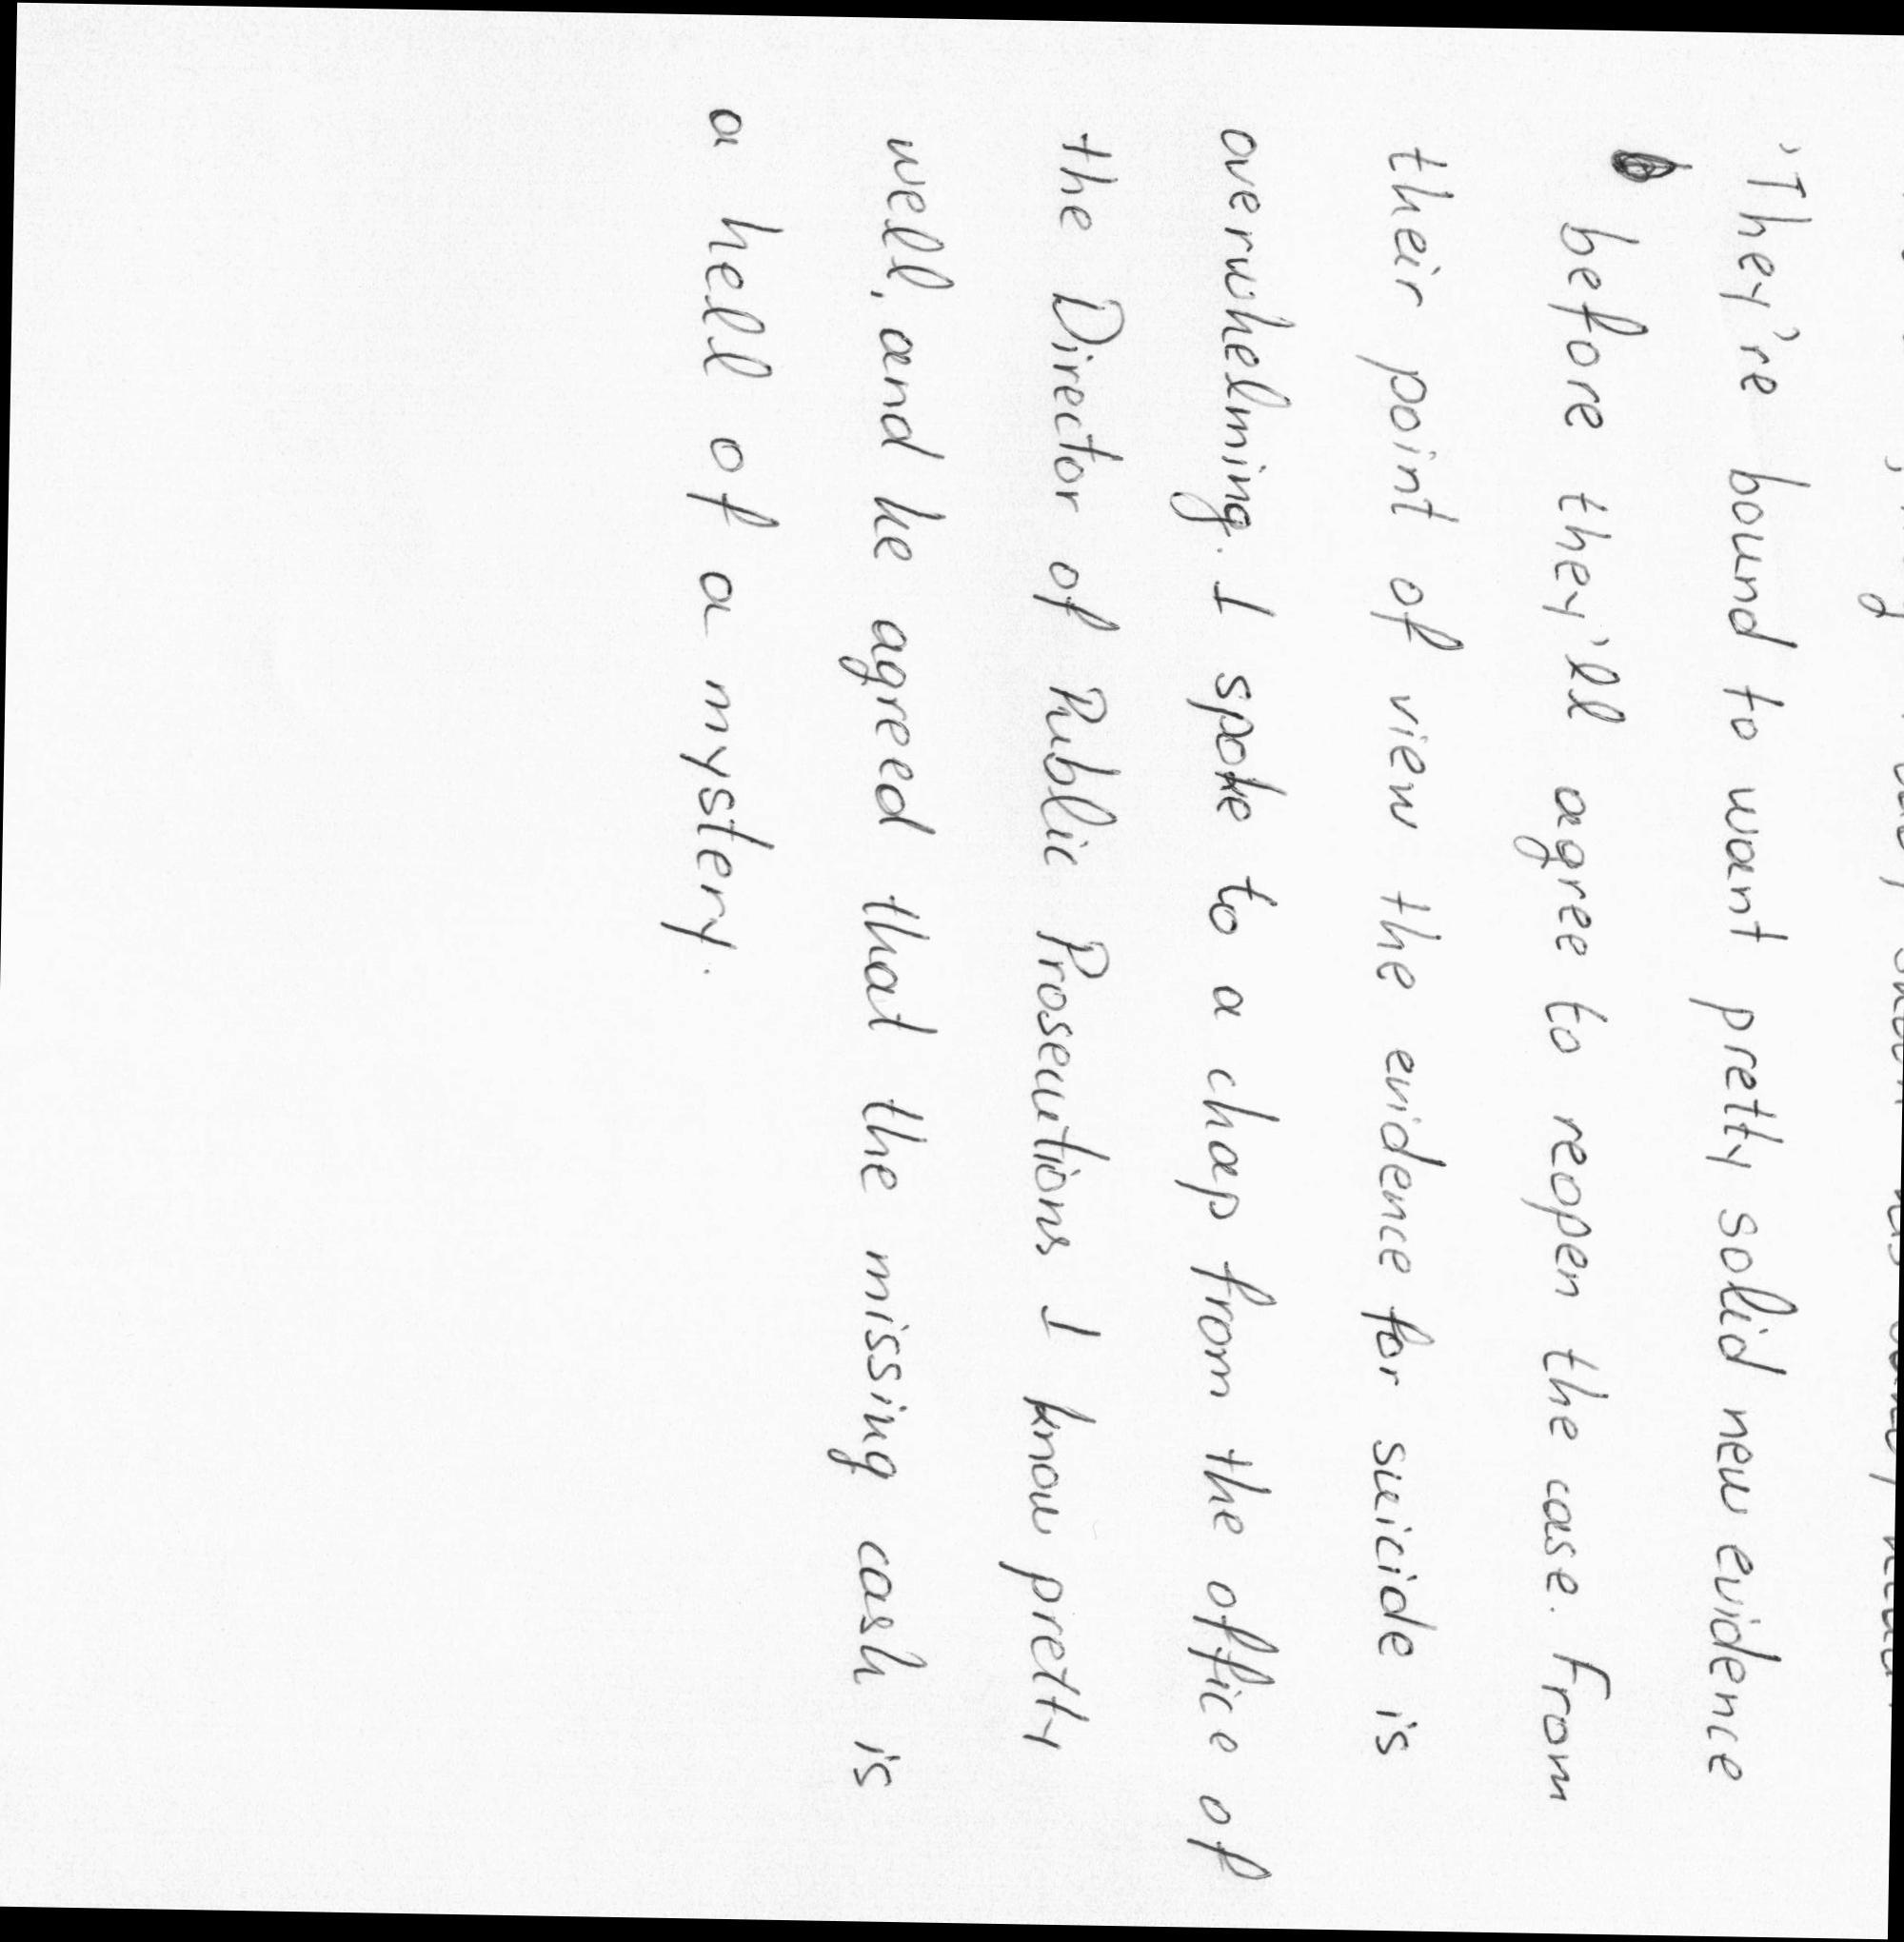 'They're bound to want pretty solid new evidence
before they'll agree to reopen the case. From
their point of view the evidence for suicide is
overwhelming. I spoke to a chap from the office of
the Director of Public Prosecutions I know pretty
well, and he agreed that the missing cash is
a hell of a mystery.